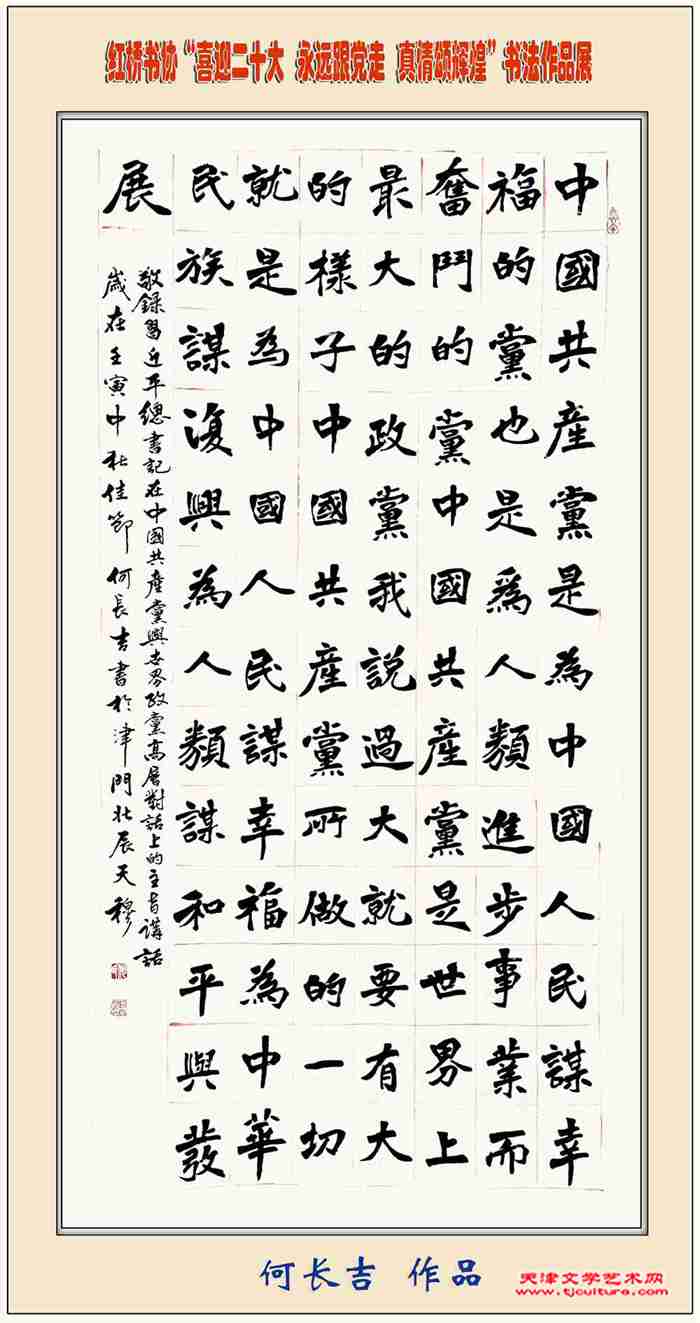 红桥书协“喜迎二十大 永远跟党走 真情颂辉煌”书法作品展
中國共産黨是為中國人民謀幸
福的黨也是爲人類進步事業而
奮鬥的黨中國共産黨是世界上
最大的政黨我説過大就要有大
的樣子中國共産黨所做的一切
就是為中國人民謀幸福為中華
民族謀復興為人類謀和平與發
展
敬録習近平總書記在中國共産黨與世界政黨高層對話上的主旨講話
歲在壬寅中秋佳節何長吉書於津門北辰天穆
何长吉 作品
天津文学艺术网
www.tjculture.com